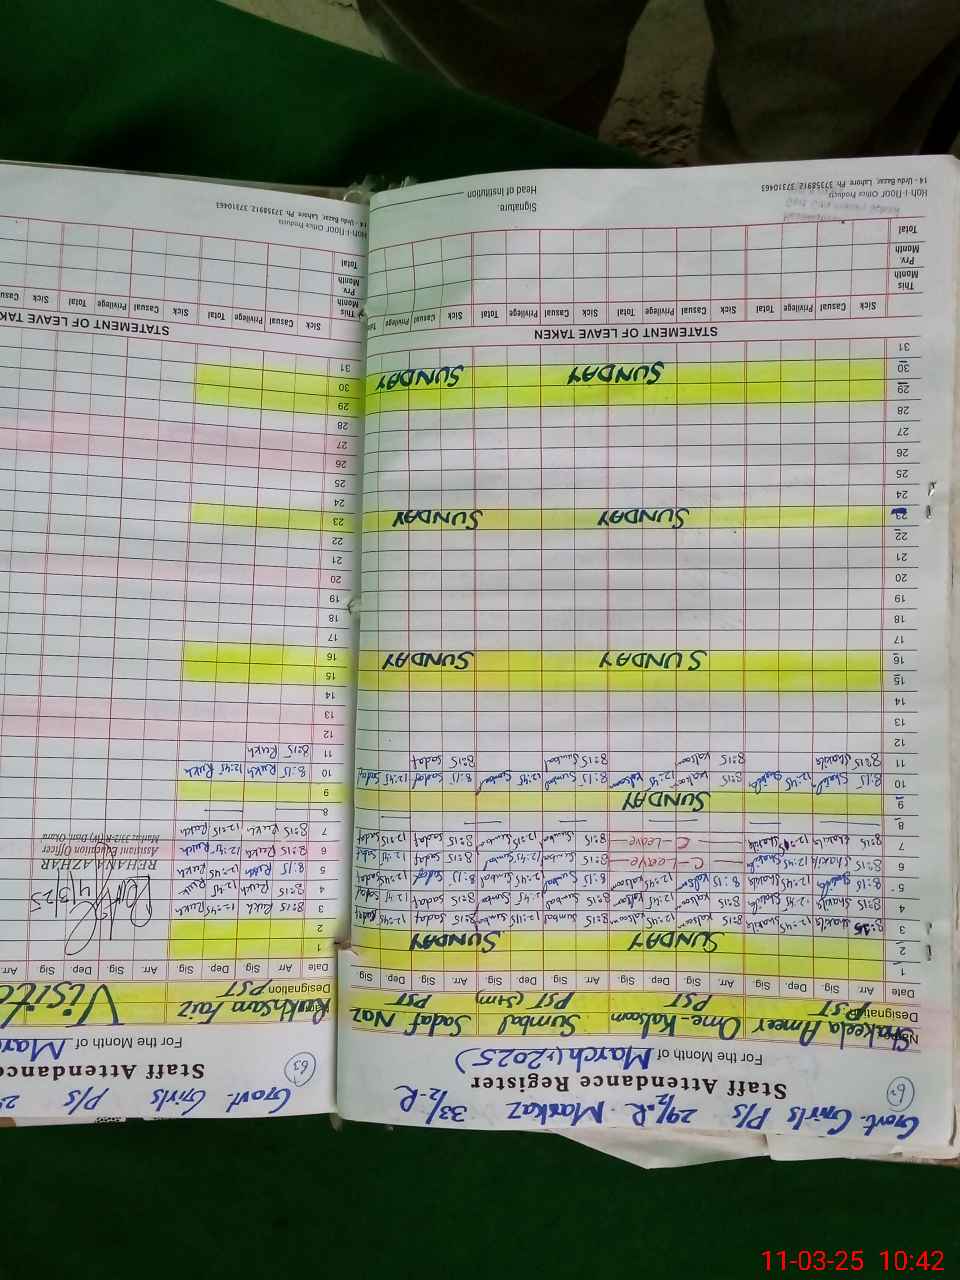 Govt. Girls P/s 29/2-R Markaz 33/2-R
62
Staff Attendance Register
For the Month of March (2025)
Name Shakeela Ameer Ome-Kalsoom Sumbal Sadaf Naz
Designation PST PST PST PST
Date Arr Sig. Dep. Sig. Arr Sig. Dep. Sig. Arr Sig. Dep. Sig. Arr Sig. Dep. Sig.
1
2 SUNDAY SUNDAY
3 8:15 Shakila 12:45 Shakila 8:15 Kalsoom 12:45 Kalsoom 8:15 Sumbal 12:45 Sumbal 8:15 Sadaf 12:45 Sadaf
4 8:15 Shakila 12:45 Shakila 8:15 Kalsoom 12:45 Kalsoom 8:15 Sumbal 12:45 Sumbal 8:15 Sadaf 12:45 Sadaf
5 8:15 Shakila 12:45 Shakila 8:15 Kalsoom 12:45 Kalsoom 8:15 Sumbal 12:45 Sumbal 8:15 Sadaf 12:45 Sadaf
6 8:15 Shakila 12:45 Shakila C-Leave 8:15 Sumbal 12:45 Sumbal 8:15 Sadaf 12:45 Sadaf
7 8:15 Shakila 12:15 Shakila C-Leave 8:15 Sumbal 12:15 Sumbal 8:15 Sadaf 12:15 Sadaf
8
9 SUNDAY
10 8:15 Shakila 12:45 Shakila 8:15 Kalsoom 12:45 Kalsoom 8:15 Sumbal 12:45 Sumbal 8:15 Sadaf 12:45 Sadaf
11 8:15 Shakila 8:15 Kalsoom 8:15 Sumbal 8:15 Sadaf
12
13
14
15
16 SUNDAY SUNDAY
17
18
19
20
21
22
23 SUNDAY SUNDAY
24
25
26
27
28
29
30 SUNDAY SUNDAY
31
STATEMENT OF LEAVE TAKEN
Sick Casual Privilege Total Sick Casual Privilege Total Sick Casual Privilege Total Sick Casual Privilege
This Month
Prv. Month
Total
Signature.
Head of Institution
Hoh-i-Noor Office Products
14 - Urdu Bazar, Lahore. Ph. 37358912, 37310463
Govt. Girls P/s
63
Staff Attendance
For the Month of Mar
Name Rukhsam Faiz Visit
Designation PST
Date Arr Sig. Dep. Sig. Arr Sig. Dep. Sig. Arr
1
2
3 8:15 Rukh 12:45 Rukh
4 8:15 Rukh 12:45 Rukh
5 8:15 Rukh 12:45 Rukh
6 8:15 Rukh 12:45 Rukh
7 8:15 Rukh 12:15 Rukh
8
9
10 8:15 Rukh 12:45 Rukh
11 8:15 Rukh
12
13
14
15
16
17
18
19
20
21
22
23
24
25
26
27
28
29
30
31
4/3/25
REHANA AZHAR
Assistant Education Officer
STATEMENT OF LEAVE TAK
Sick Casual Privilege Total Sick Casual Privilege Total Sick Casu
This Month
Prv. Month
Total
Hoh-i-Noor Office Products
14 - Urdu Bazar, Lahore. Ph. 37358912, 37310463
11-03-25 10:42